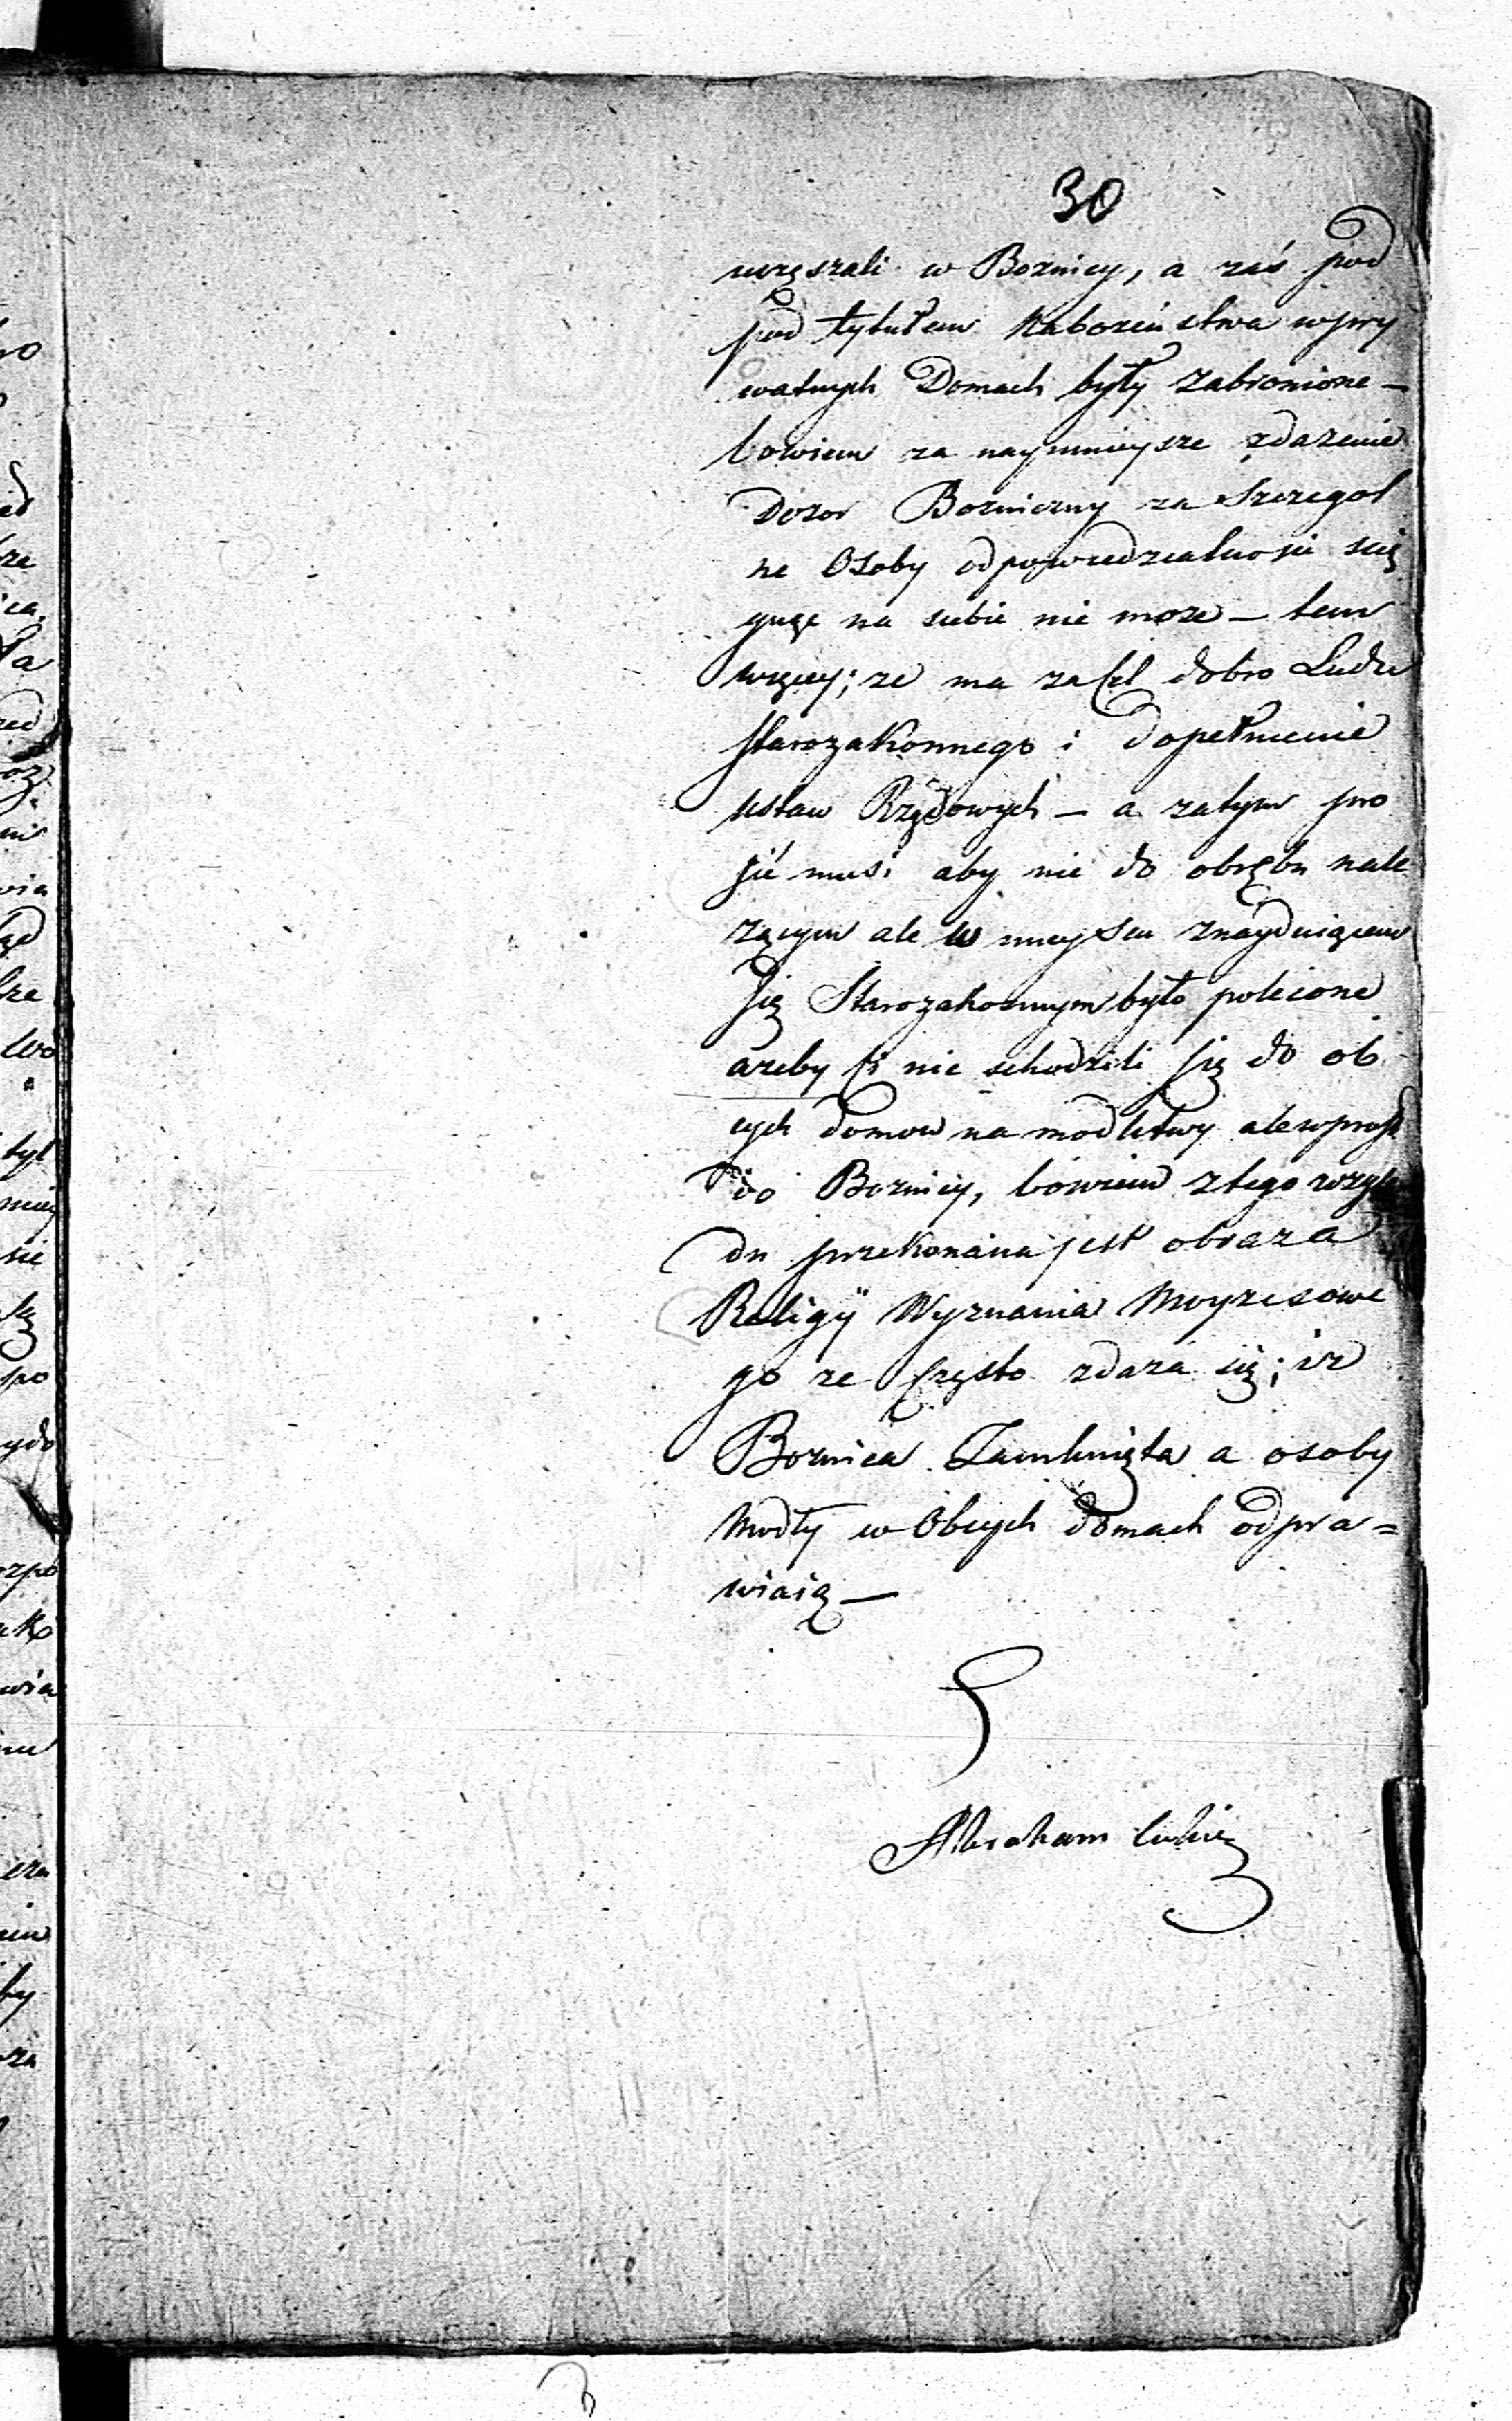 30
uczęszali w Boznicy, a zaś pod
pod tytułem Nabozeństwa w pry
watnych Domach były zabronione —
bowiem za naymnieysze zdazenie
Dozor Bozniczny za Szczegol
ne Osoby odpowiedzialnosci scią
gnąc na siebie nie moze — tem
więcey; ze ma za Cel dobro Ludu
starozakonnego i dopełnienie
ustaw Rządowych — a zatym pro
sić musi aby nie do obrębu nale
zącym ale w mieyscu znayduiącem
się Starozakonnym było polecone
azeby Ci nie schodzili się do ob
cych domow na modlitwy ale wprost
do Boznicy, bowiem z tego wzglę
du przekonana jest obraza
Religÿ Wyznania Moyzeszowe
go ze Często zdaza się; iz
Boznica Zamknięta a osoby
Modły w Obcych domach odpra=
wiaią —
Abraham